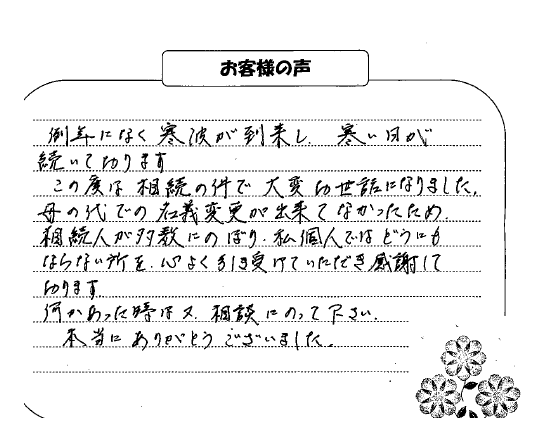 お客様の声
例年になく寒波が到来し、寒い日が
続いております
この度は相続の件で大変お世話になりました。
母の代での名義変更が出来てなかったため、
相続人が多数にのぼり、私個人ではどうにも
ならない所を、心よく引き受けていただき感謝して
おります。
何かあった時は又、相談にのって下さい。
本当にありがとうございました。